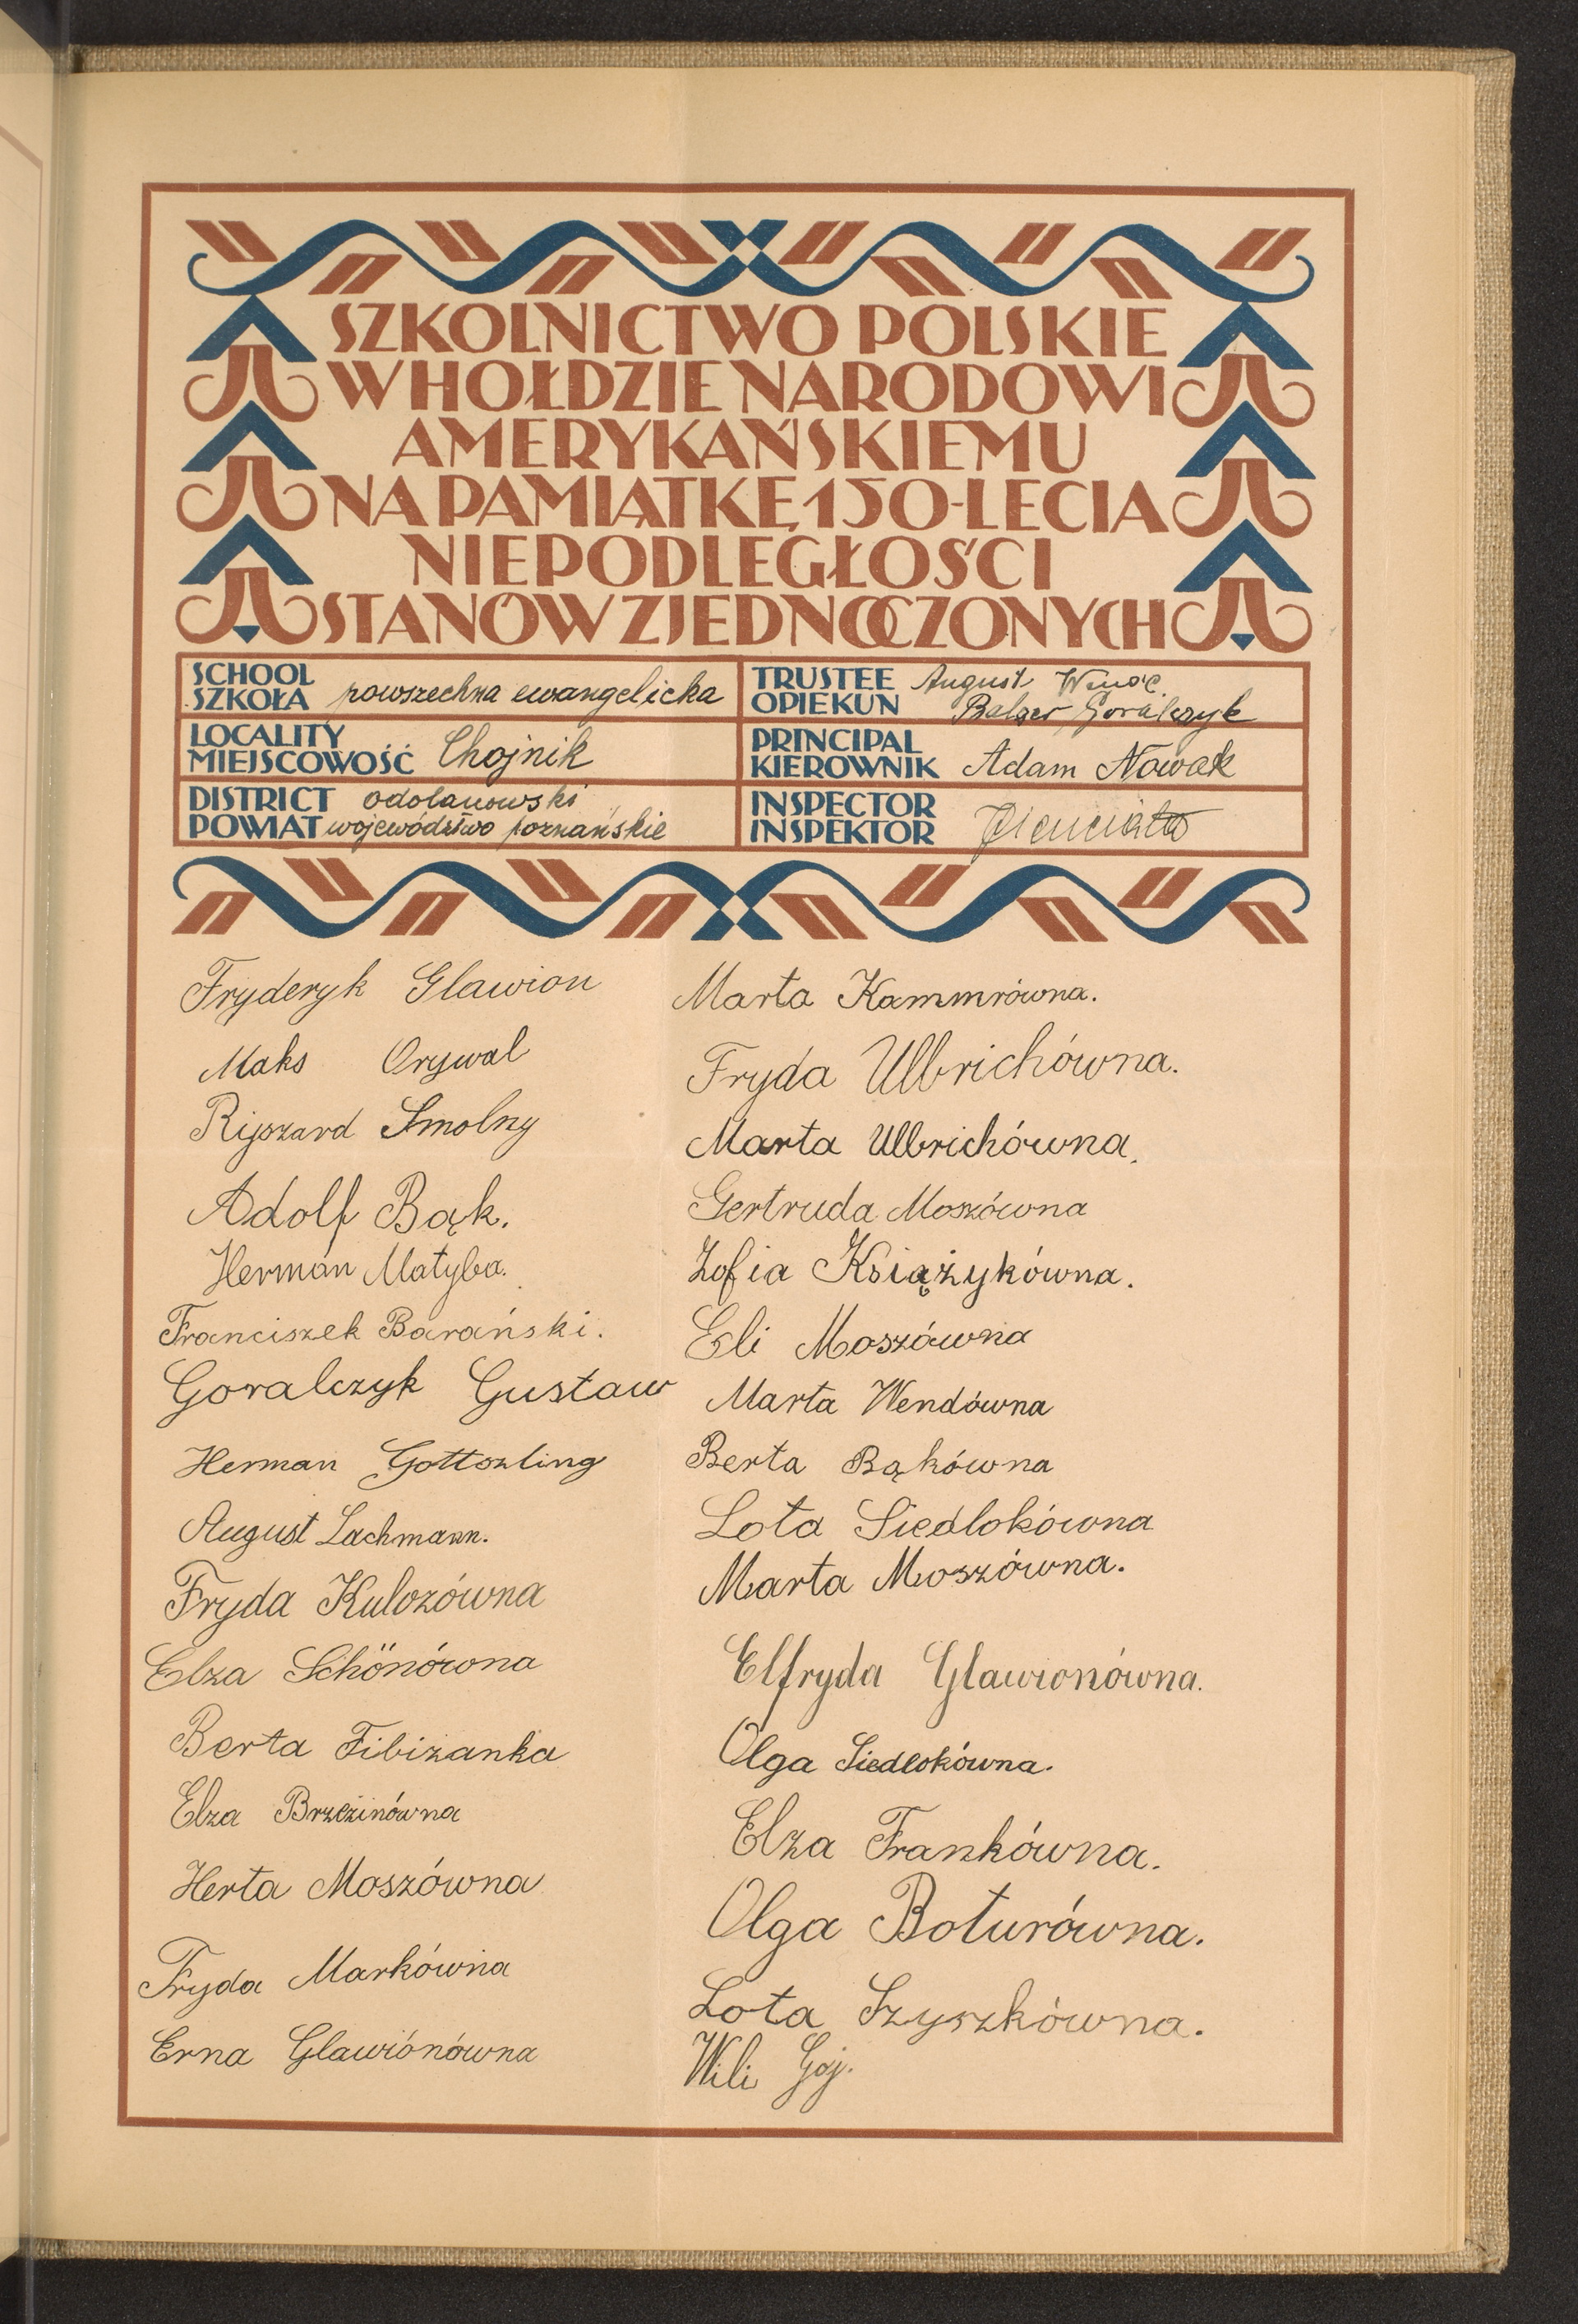 SZKOLNICTWO POLSKIE
W HOŁDZIE NARODOWI
AMERYKAŃSKIEMU
NA PAMIĄTKĘ 150-LECIA
NIEPODLEGŁOŚCI
STANÓW ZJEDNOCZONYCH
SCHOOL
SZKOŁA powszechna ewangelicka
TRUSTEE August
OPIEKUN Balzer Goralczyk
LOCALITY
MIEJSCOWOŚĆ Chojnik
PRINCIPAL
KIEROWNIK Adam Nowak
DISTRICT odolanowski
POWIAT województwo poznańskie
INSPECTOR
INSPEKTOR
Fryderyk Glawion
Maks Orywal
Ryszard Smolny
Adolf Bąk.
Herman Matyba.
Franciszek Barański.
Goralczyk Gustaw
Herman Gottszling
August Lachmann.
Fryda Kulozówna
Elza Schönówna
Berta Fibiżanka
Elza Brzezinówna
Herta Moszówna
Fryda Markówna
Erna Glawiónówna
Marta Kammrówna.
Fryda Ulbrichówna.
Marta Ulbrichówna.
Gertruda Moszówna
Zofia Książykówna.
Eli Moszówna
Marta Wendówna
Berta Bąkówna
Lota Siedlokówna
Marta Moszówna.
Elfryda Glawionówna.
Olga Siedlokówna.
Elza Frankówna.
Olga Boturówna.
Lota Szyszkówna.
Wili Goj.